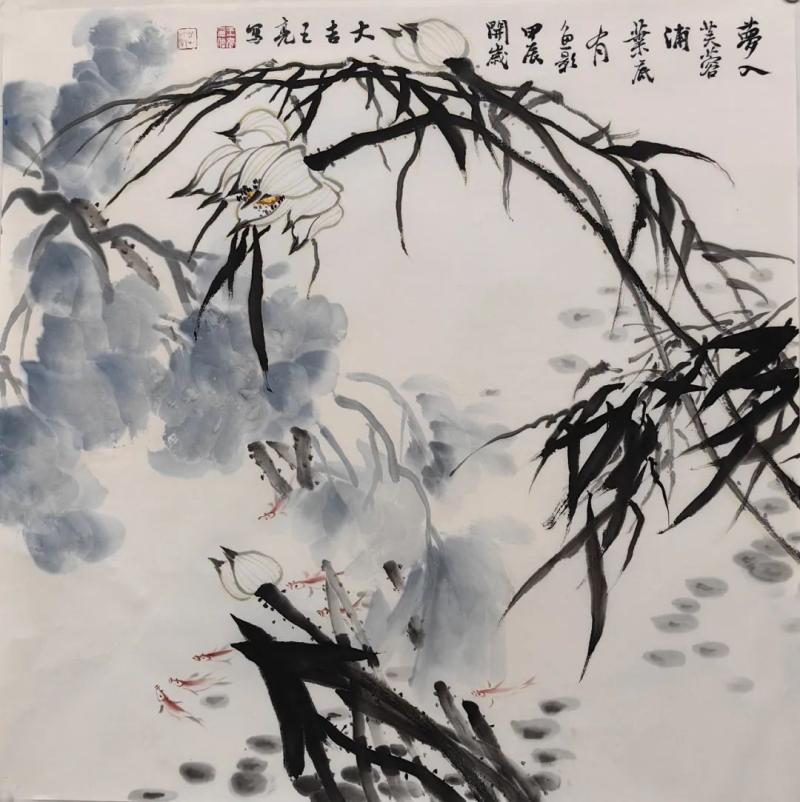 夢入
芙蓉
浦
葉底
有
魚影
甲辰
開歲
大吉王亮寫